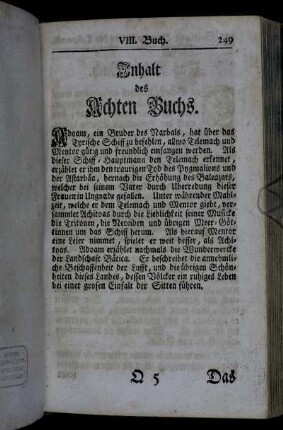 VIII. Buch. 249
Inhalt
des
Achten Buchs.
Adoam, ein Bruder des Narbals, hat über das
Tyrische Schiff zu befehlen, allwo Telemach und
Mentor gütig und freundlich empfangen werden. Als
dieser Schiff-Hauptmann den Telemach erkennet,
erzählet er ihm den traurigen Tod des Pygmalions und
der Astarbäa, hernach die Erhöhung des Baleazars,
welcher bei seinem Vater durch Uberredung dieser
Frauen in Ungnade gefallen. Unter währender Mahl-
zeit, welche er dem Telemach und Mentor giebt, ver-
sammlet Achitoas durch die Lieblichkeit seiner Musicke
die Tritonen, die Nereiden und übrigen Meer-Göt-
tinnen um das Schiff herum. Als hierauf Mentor
eine Leier nimmet, spielet er weit besser, als Achi-
toas. Adoam erzählet nochmals die Wunderwercke
der Landschaft Bätica. Er beschreibet die annehmli-
che Beschaffenheit der Lufft, und die übrigen Schön-
heiten dieses Landes, dessen Völcker ein ruhiges Leben
bei einer grosen Einfalt der Sitten führen.
Q 5 Das